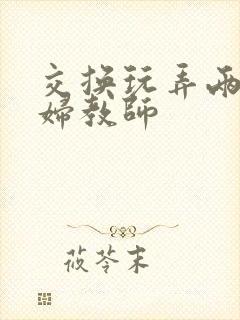 交换玩弄两
婦教師
莜苓末